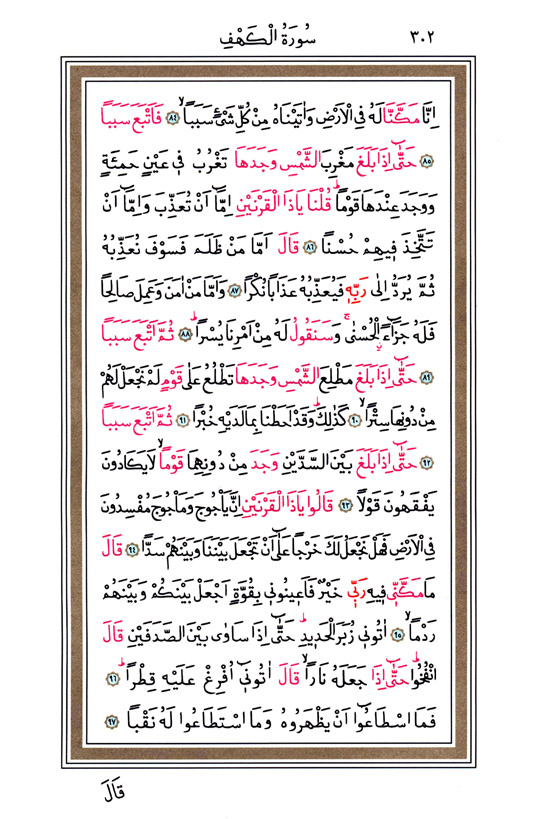 ٣٠٢ سُورَةُ الْكَهْفِ
اِنَّا مَكَّنَّا لَهُ فِى الْاَرْضِ وَاٰتَيْنَاهُ مِنْ كُلِّ شَىْءٍ سَبَباًۙ ﴿٨٤﴾ فَاَتْبَعَ سَبَباً
﴿٨٥﴾ حَتّٰٓى اِذَا بَلَغَ مَغْرِبَ الشَّمْسِ وَجَدَهَا تَغْرُبُ ف۪ى عَيْنٍ حَمِئَةٍ
وَوَجَدَ عِنْدَهَا قَوْماًۜ قُلْنَا يَاذَا الْقَرْنَيْنِ اِمَّٓا اَنْ تُعَذِّبَ وَاِمَّٓا اَنْ
تَتَّخِذَ ف۪يهِمْ حُسْناً ﴿٨٦﴾ قَالَ اَمَّا مَنْ ظَلَمَ فَسَوْفَ نُعَذِّبُهُ
ثُمَّ يُرَدُّ اِلٰى رَبِّه۪ فَيُعَذِّبُهُ عَذَاباً نُكْراً ﴿٨٧﴾ وَاَمَّا مَنْ اٰمَنَ وَعَمِلَ صَالِحاً
فَلَهُ جَزَٓاءًۨ الْحُسْنٰىۚ وَسَنَقُولُ لَهُ مِنْ اَمْرِنَا يُسْراًۜ ﴿٨٨﴾ ثُمَّ اَتْبَعَ سَبَباً
﴿٨٩﴾ حَتّٰٓى اِذَا بَلَغَ مَطْلِعَ الشَّمْسِ وَجَدَهَا تَطْلُعُ عَلٰى قَوْمٍ لَمْ نَجْعَلْ لَهُمْ
مِنْ دُونِهَا سِتْراًۙ ﴿٩٠﴾ كَذٰلِكَۜ وَقَدْ اَحَطْنَا بِمَا لَدَيْهِ خُبْراً ﴿٩١﴾ ثُمَّ اَتْبَعَ سَبَباً
﴿٩٢﴾ حَتّٰٓى اِذَا بَلَغَ بَيْنَ السَّدَّيْنِ وَجَدَ مِنْ دُونِهِمَا قَوْماًۙ لَا يَكَادُونَ
يَفْقَهُونَ قَوْلاً ﴿٩٣﴾ قَالُوا يَاذَا الْقَرْنَيْنِ اِنَّ يَاْجُوجَ وَمَاْجُوجَ مُفْسِدُونَ
فِى الْاَرْضِ فَهَلْ نَجْعَلُ لَكَ خَرْجاً عَلٰٓى اَنْ تَجْعَلَ بَيْنَنَا وَبَيْنَهُمْ سَداًّ ﴿٩٤﴾ قَالَ
مَا مَكَّنّ۪ى ف۪يهِ رَبّ۪ى خَيْرٌ فَاَع۪ينُون۪ى بِقُوَّةٍ اَجْعَلْ بَيْنَكُمْ وَبَيْنَهُمْ
رَدْماًۙ ﴿٩٥﴾ اٰتُون۪ى زُبَرَ الْحَد۪يدِۜ حَتّٰٓى اِذَا سَاوٰى بَيْنَ الصَّدَفَيْنِ قَالَ
انْفُخُواۜ حَتّٰٓى اِذَا جَعَلَهُ نَاراًۙ قَالَ اٰتُون۪ٓى اُفْرِغْ عَلَيْهِ قِطْراًۜ ﴿٩٦﴾
فَمَا اسْطَاعُٓوا اَنْ يَظْهَرُوهُ وَمَا اسْتَطَاعُوا لَهُ نَقْباً ﴿٩٧﴾
قَالَ